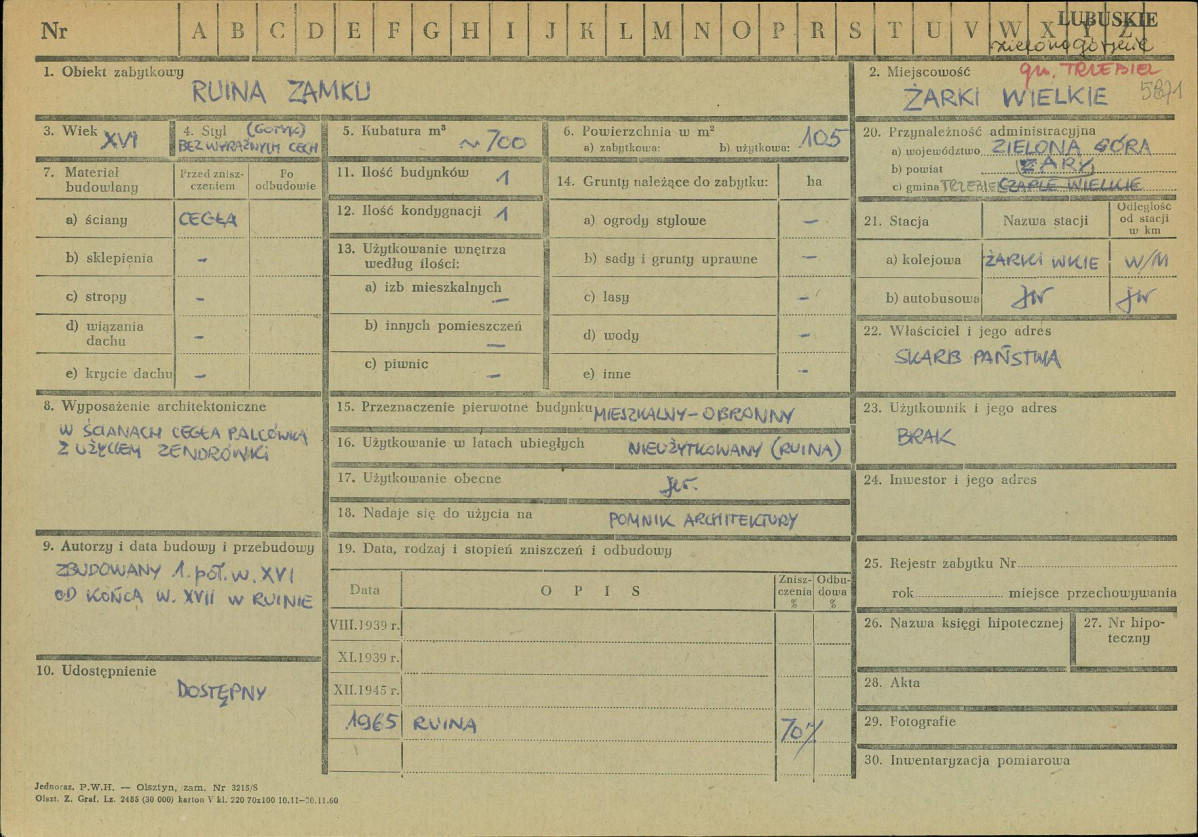 Nr A B C D E F G H I J K L M N O P R S T U V W X Y Z
LUBUSKIE
zielonogórskie
gm. TRZEBIEL
1. Obiekt zabytkowy
RUINA ZAMKU
2. Miejscowość
ŻARKI WIELKIE 5871
3. Wiek XVI
4. Styl (GOTYK)
BEZ WYRAŹNYCH CECH
5. Kubatura m³
~700
6. Powierzchnia w m²
a) zabytkowa: b) użytkowa: 105
20. Przynależność administracyjna
a) województwo ZIELONA GÓRA
b) powiat ŻARY
c) gmina TRZEBIEL CZAPLE WIELKIE
7. Materiał budowlany
Przed znisz-czeniem
Po odbudowie
a) ściany CEGŁA
b) sklepienia -
c) stropy -
d) wiązania dachu -
e) krycie dachu -
11. Ilość budynków 1
12. Ilość kondygnacji 1
13. Użytkowanie wnętrza
według ilości:
a) izb mieszkalnych —
b) innych pomieszczeń —
c) piwnic —
14. Grunty należące do zabytku: ha
a) ogrody stylowe —
b) sady i grunty uprawne —
c) lasy —
d) wody —
e) inne —
21. Stacja Nazwa stacji Odległość od stacji w km
a) kolejowa ŻARKI WKIE W/M
b) autobusowa jw jw
22. Właściciel i jego adres
SKARB PAŃSTWA
8. Wyposażenie architektoniczne
W ŚCIANACH CEGŁA PALCÓWKA
Z UŻYCIEM ZENDRÓWKI
15. Przeznaczenie pierwotne budynku MIESZKALNY-OBRONNY
16. Użytkowanie w latach ubiegłych NIEUŻYTKOWANY (RUINA)
17. Użytkowanie obecne jw.
18. Nadaje się do użycia na POMNIK ARCHITEKTURY
23. Użytkownik i jego adres
BRAK
24. Inwestor i jego adres
9. Autorzy i data budowy i przebudowy
ZBUDOWANY 1. poł. w. XVI
OD KOŃCA W. XVII W RUINIE
19. Data, rodzaj i stopień zniszczeń i odbudowy
Data O P I S Znisz-czenia % Odbu-dowa %
VIII.1939 r.
XI.1939 r.
XII.1945 r.
1965 RUINA 70%
25. Rejestr zabytku Nr
rok miejsce przechowywania
26. Nazwa księgi hipotecznej
27. Nr hipo-teczny
10. Udostępnienie
DOSTĘPNY
28. Akta
29. Fotografie
30. Inwentaryzacja pomiarowa
Jednoraz. P.W.H. — Olsztyn, zam. Nr 3215/S
Olszt. Z. Graf. Lz. 2485 (30 000) karton V kl. 220 70x100 10.11—30.11.60